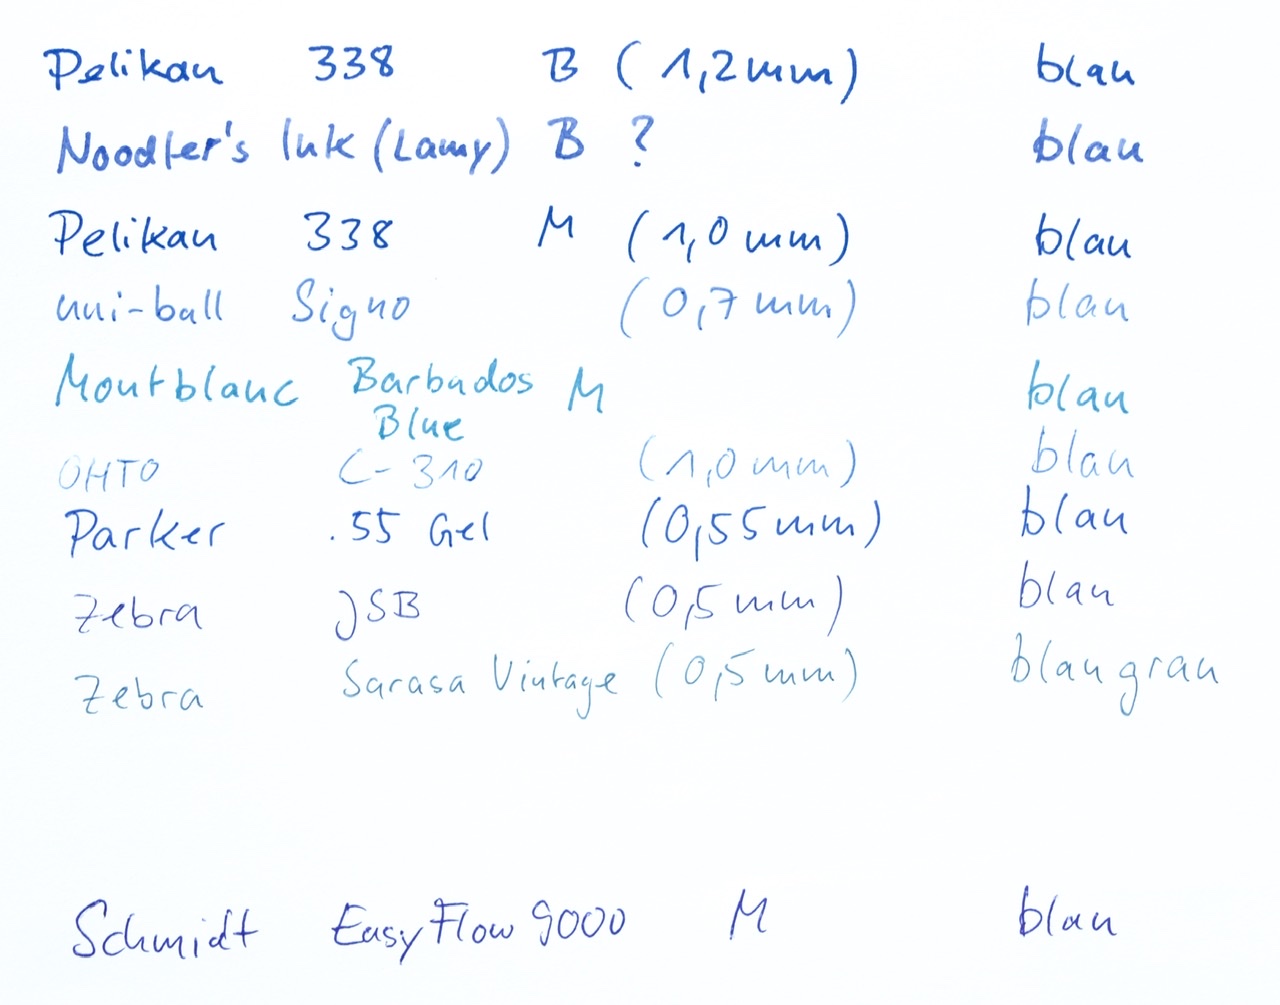 Pelikan 338 B (1,2mm) blau
Noodler's Ink (Lamy) B ? blau
Pelikan 338 M (1,0mm) blau
uni-ball Signo (0,7mm) blau
Montblanc Barbados Blue M blau
OHTO C-310 (1,0mm) blau
Parker .55 Gel (0,55mm) blau
Zebra JSB (0,5mm) blau
Zebra Sarasa Vintage (0,5mm) blaugrau
Schmidt EasyFlow 9000 M blau